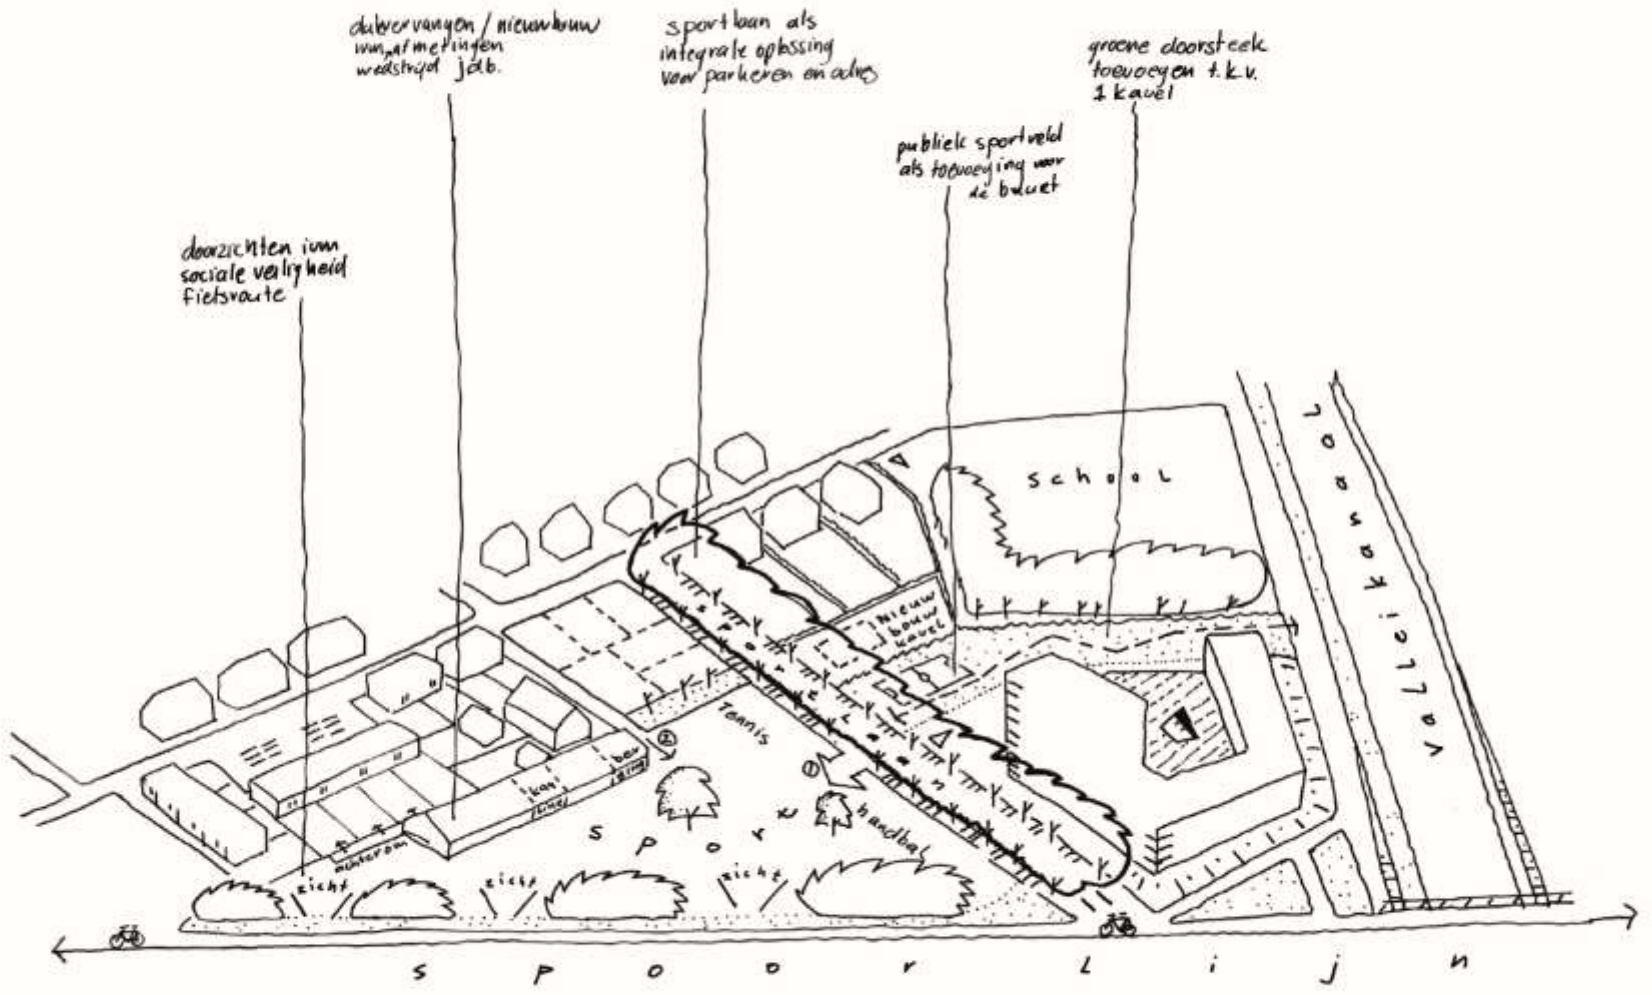 dakvervangen / nieuwbouw
wedstrijd jdb.
sportlaan als
integrale oplossing
voor parkeren en adres
groene doorsteek
toevoegen t.k.v.
1 kavel
publiek sportveld
als toevoeging voor
de buurt
doorzichten ivm
sociale veiligheid
fietsroute
school
valleikanaal
nieuw
bouw
kavel
sportlaan
Tennis
②
①
kan
tine
ber
ging
sport
handbal
achterom
zicht
zicht
zicht
spoorlijn